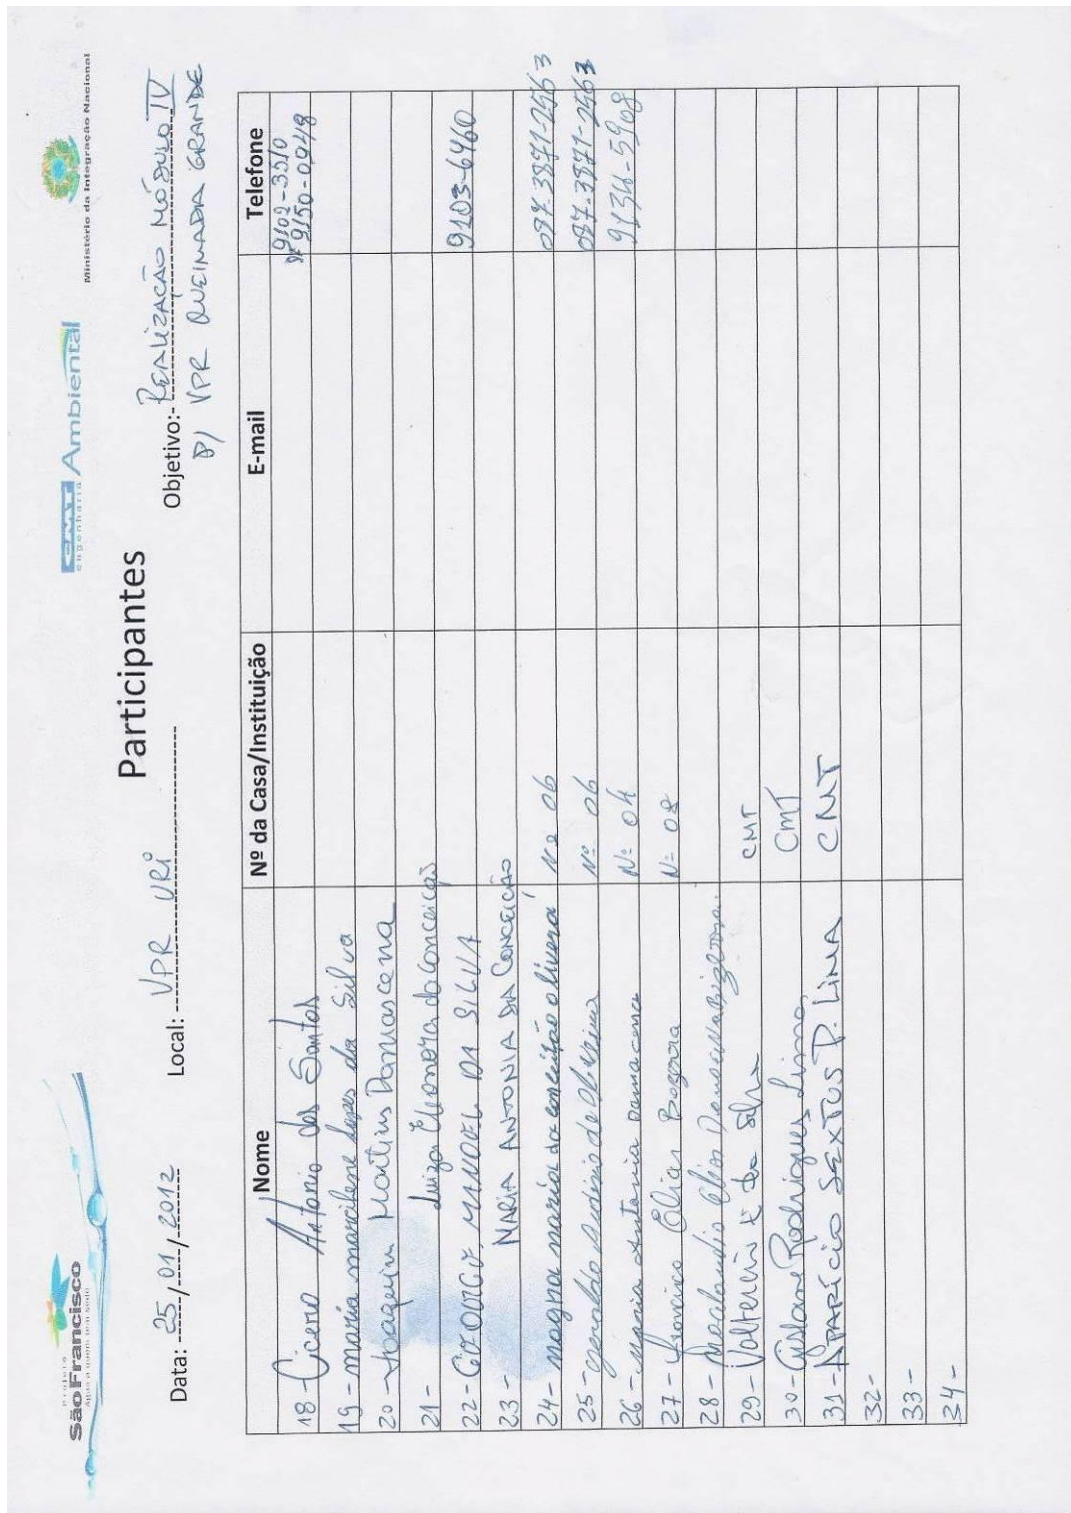 Projeto
São Francisco
Água a quem tem sede
CMT
engenharia
Ambiental
Ministério da Integração Nacional
Participantes
Data: 25/01/2012 Local: VPR URI Objetivo:- REALIZAÇÃO MÓDULO IV
P/ VPR QUEIMADA GRANDE
Nome Nº da Casa/Instituição E-mail Telefone
18 - Cicero Antonio dos Santos 9102-3510
9150-0948
19 - maria marcilene lopes da Silva
20 - Joaquim Martins Damascena
21 - Luiza Eleonora da Conceição
22 - MANOEL DA SILVA 9103-6460
23 - MARIA ANTONIA DA CONCEICÃO
24 - magna maria da conceição oliveira Nº 06 087-3871-2563
25 - geraldo de oliveira Nº 06 087-3871-2563
26 - Maria antonia Damacena Nº 04 9134-5908
27 - Elias Bezerra Nº 08
28 - Elias
29 - da Silva CMT
30 - Rodrigues Lima CMT
31 - APARÍCIO SEXTUS P. LIMA CMT
32 -
33 -
34 -